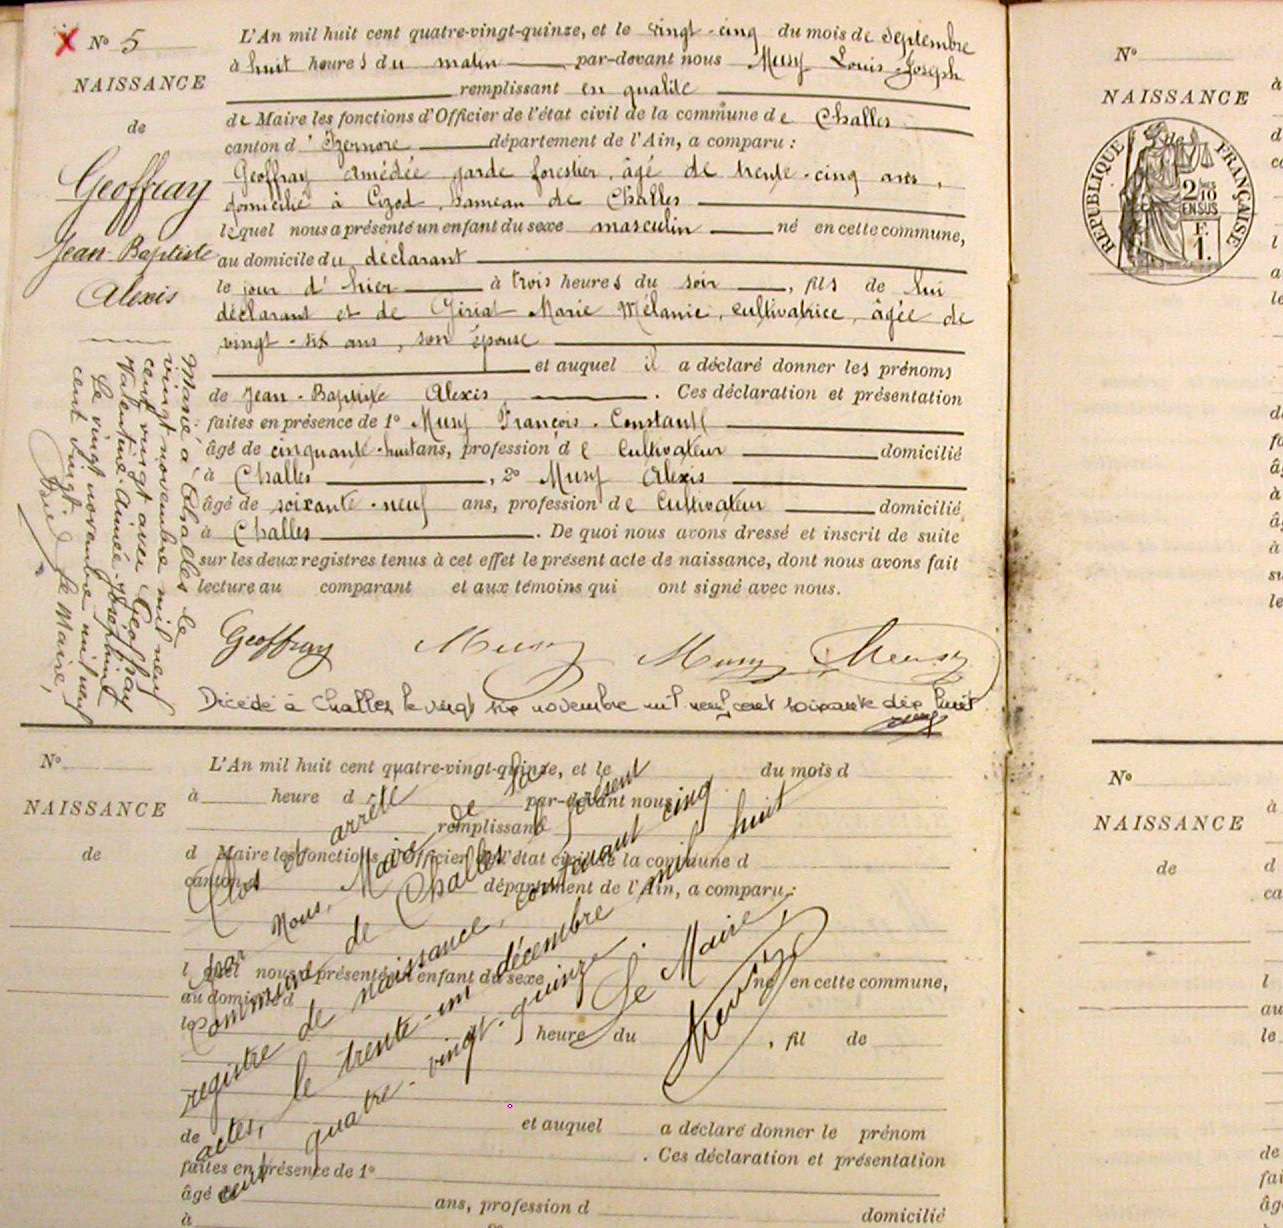 N° 5
NAISSANCE
de
Geoffray
Jean-Baptiste
Alexis
L'An mil huit cent quatre-vingt-quinze, et le vingt-cinq du mois de septembre
à huit heures du matin par-devant nous Musy Louis-Joseph
remplissant en qualité
de Maire les fonctions d'Officier de l'état civil de la commune de Challes
canton d'Izernore département de l'Ain, a comparu :
Geoffray Amédée garde forestier, âgé de trente-cinq ans,
domicilié à Cizod, hameau de Challes
lequel nous a présenté un enfant du sexe masculin né en cette commune,
au domicile du déclarant
le jour d'hier à trois heures du soir, fils de lui
déclarant et de Giriat Marie Mélanie, cultivatrice, âgée de
vingt-six ans, son épouse
et auquel il a déclaré donner les prénoms
de Jean-Baptiste Alexis. Ces déclaration et présentation
faites en présence de 1° Musy François-Constant
âgé de cinquante-huit ans, profession de Cultivateur domicilié
à Challes, 2° Musy Alexis
âgé de soixante-neuf ans, profession de Cultivateur domicilié
à Challes. De quoi nous avons dressé et inscrit de suite
sur les deux registres tenus à cet effet le présent acte de naissance, dont nous avons fait
lecture au comparant et aux témoins qui ont signé avec nous.
Geoffray Musy Musy Musy
Décédé à Challes le vingt six novembre mil neuf cent soixante dix huit
Marié à Challes le
vingt novembre mil neuf
cent vingt avec Geoffray
Valentine-Aimée-Joséphine
Le vingt novembre mil neuf
cent vingt
Le Maire,
N°
NAISSANCE
de
L'An mil huit cent quatre-vingt-quinze, et le du mois d
à heure d par-devant nous
remplissant
d Maire les fonctions d'Officier de l'état civil de la commune d
canton d département de l'Ain, a comparu :
l quel nous a présenté un enfant du sexe né en cette commune,
au domicile d
le heure du , fil de
et auquel a déclaré donner le prénom
de . Ces déclaration et présentation
faites en présence de 1°
âgé ans, profession d
à domicilié
Clos et arrêté
par Nous, Maire de la
Commune de Challes le présent
registre de naissance, contenant cinq
actes, le trente-un décembre mil huit
cent quatre-vingt-quinze.
Le Maire,
Musy
N°
NAISSANCE
de
RÉPUBLIQUE FRANÇAISE
2/10
EN SUS
F.
1.
N°
NAISSANCE
de